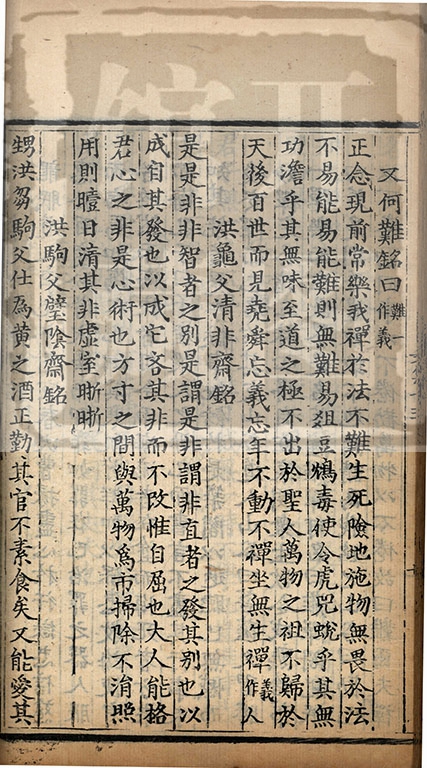 又何難銘曰難一作義
正念現前常樂我禪於法不難生死險地施物無畏於法
不易能易能難則無難易俎豆鴆毒使令虎兕蛻乎其無
功澹乎其無味至道之極不出於聖人萬物之祖不歸於
天後百世而見堯舜忘義忘年不動不禪坐無生禪義作人
洪龜父清非齋銘
是是非非智者之別是謂是非謂非直者之發其別也以
成宿其發也以成它客其非而不改惟自屈也大人能格
君心之非是心術也方寸之間與萬物為市掃除不涓照
用則曀日清其非虛室晰晰
洪駒父璧陰齋銘
甥洪芻駒父仕為黄之酒正勤其官不素食矣又能愛其